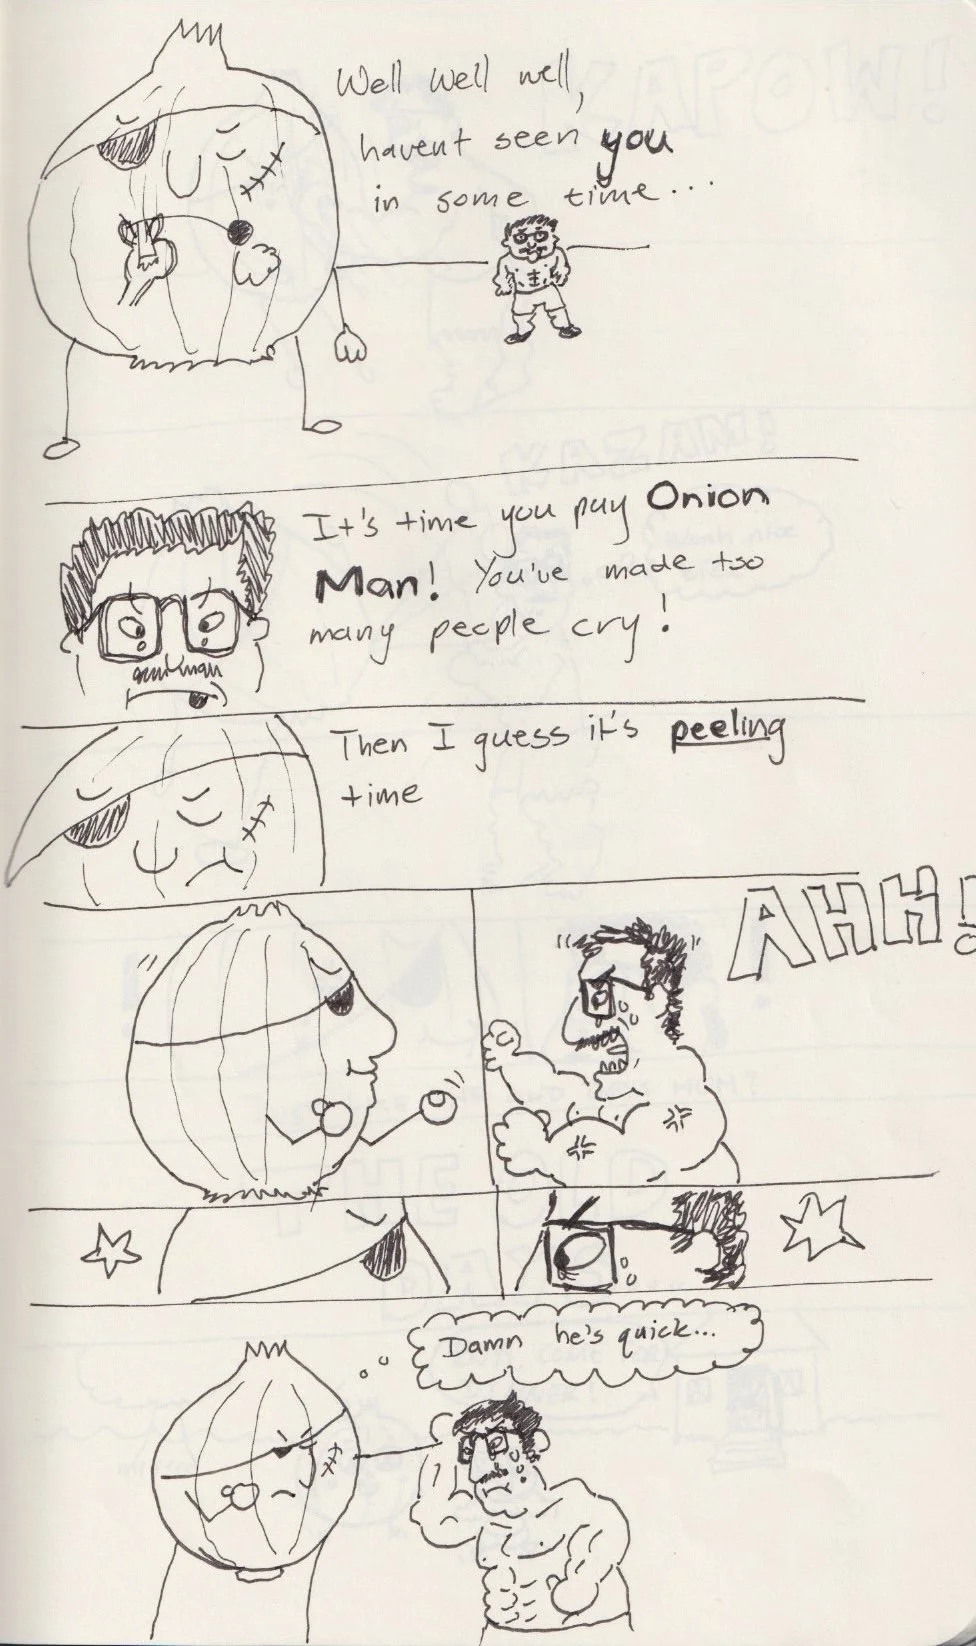 Well well well,
havent seen you
in some time...
It's time you pay Onion
Man! You've made too
many people cry!
Then I guess it's peeling
time
AHH!
Damn he's quick...